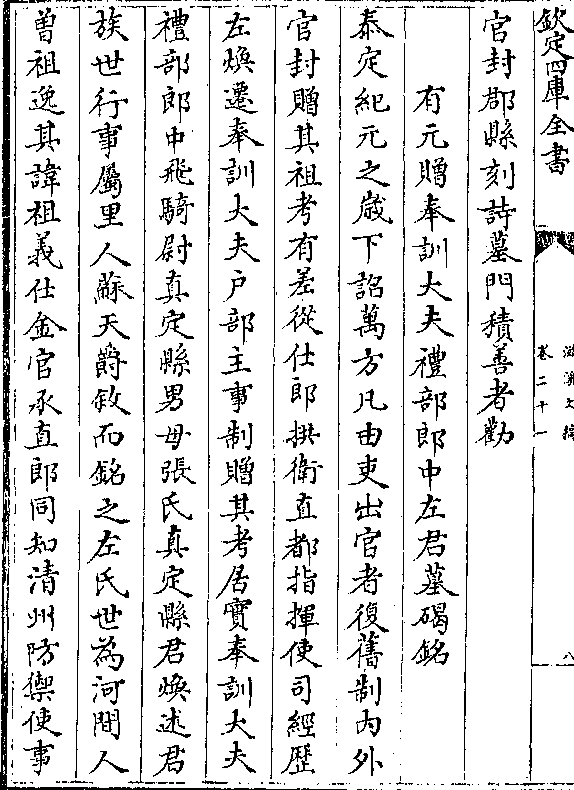 欽定四庫全書
滋溪文稿
卷二十一
八
官封郡縣刻詩墓門積善者勸
有元贈奉訓大夫禮部郎中左君墓碣銘
泰定紀元之歲下詔萬方凡由吏出官者復舊制内外
官封贈其祖考有差從仕郎拱衛直都指揮使司經歷
左煥遷奉訓大夫户部主事制贈其考居實奉訓大夫
禮部郎中飛騎尉真定縣男母張氏真定縣君煥述君
族世行事屬里人蘇天爵敘而銘之左氏世為河間人
曽祖逸其諱祖義仕金官承直郎同知清州防禦使事